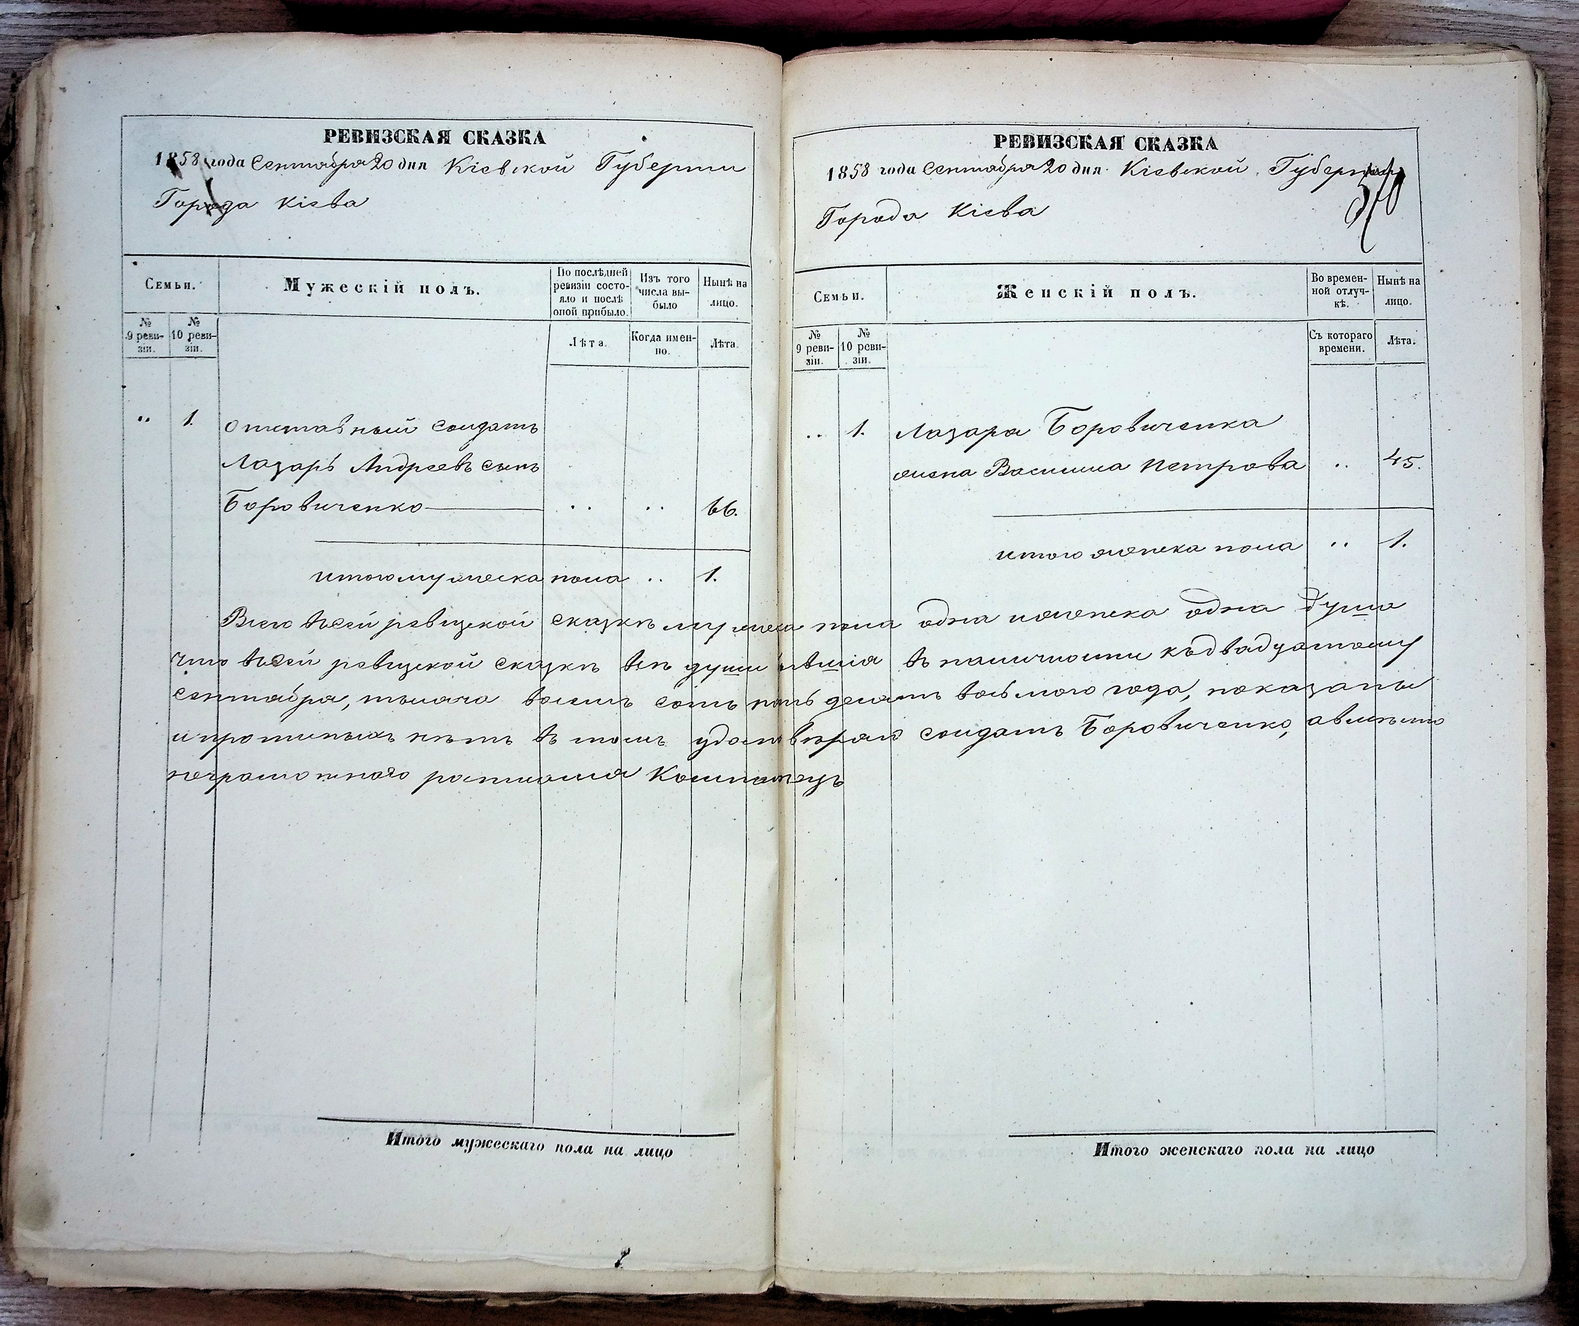 РЕВИЗСКАЯ СКАЗКА
1858 года Сентября 20 дня Кіевской Губерніи
Города Кіева
Семьи.
Мужескій полъ.
По послѣдней ревизіи состояло и послѣ оной прибыло.
Изъ того числа выбыло
Нынѣ на лицо.
№ 9 ревизіи.
№ 10 ревизіи.
Лѣта.
Когда именно.
Лѣта.
„ 1. отставный солдатъ
Лазарь Андреевъ сынъ
Боровиченко „ „ 66.
итого мужеска пола „ 1.
РЕВИЗСКАЯ СКАЗКА
1858 года Сентября 20 дня Кіевской Губерніи
Города Кіева
Семьи.
Женскій полъ.
Во временной отлучкѣ.
Нынѣ на лицо.
№ 9 ревизіи.
№ 10 ревизіи.
Съ котораго времени.
Лѣта.
„ 1. Лазаря Боровиченка
жена Василиса Петрова „ 45.
итого женска пола „ 1.
Всего въ сей ревизской сказкѣ мужеска пола одна и женска одна душа
что въ сей ревизской сказкѣ всѣ души въ наличности къ двадцатому
сентября, тысяча восемь сотъ пять десятъ восьмого года, показаны
и прописныхъ нѣтъ въ томъ солдатъ Боровиченко, а вмѣсто
неграмотного росписался
Итого мужескаго пола на лицо
Итого женскаго пола на лицо